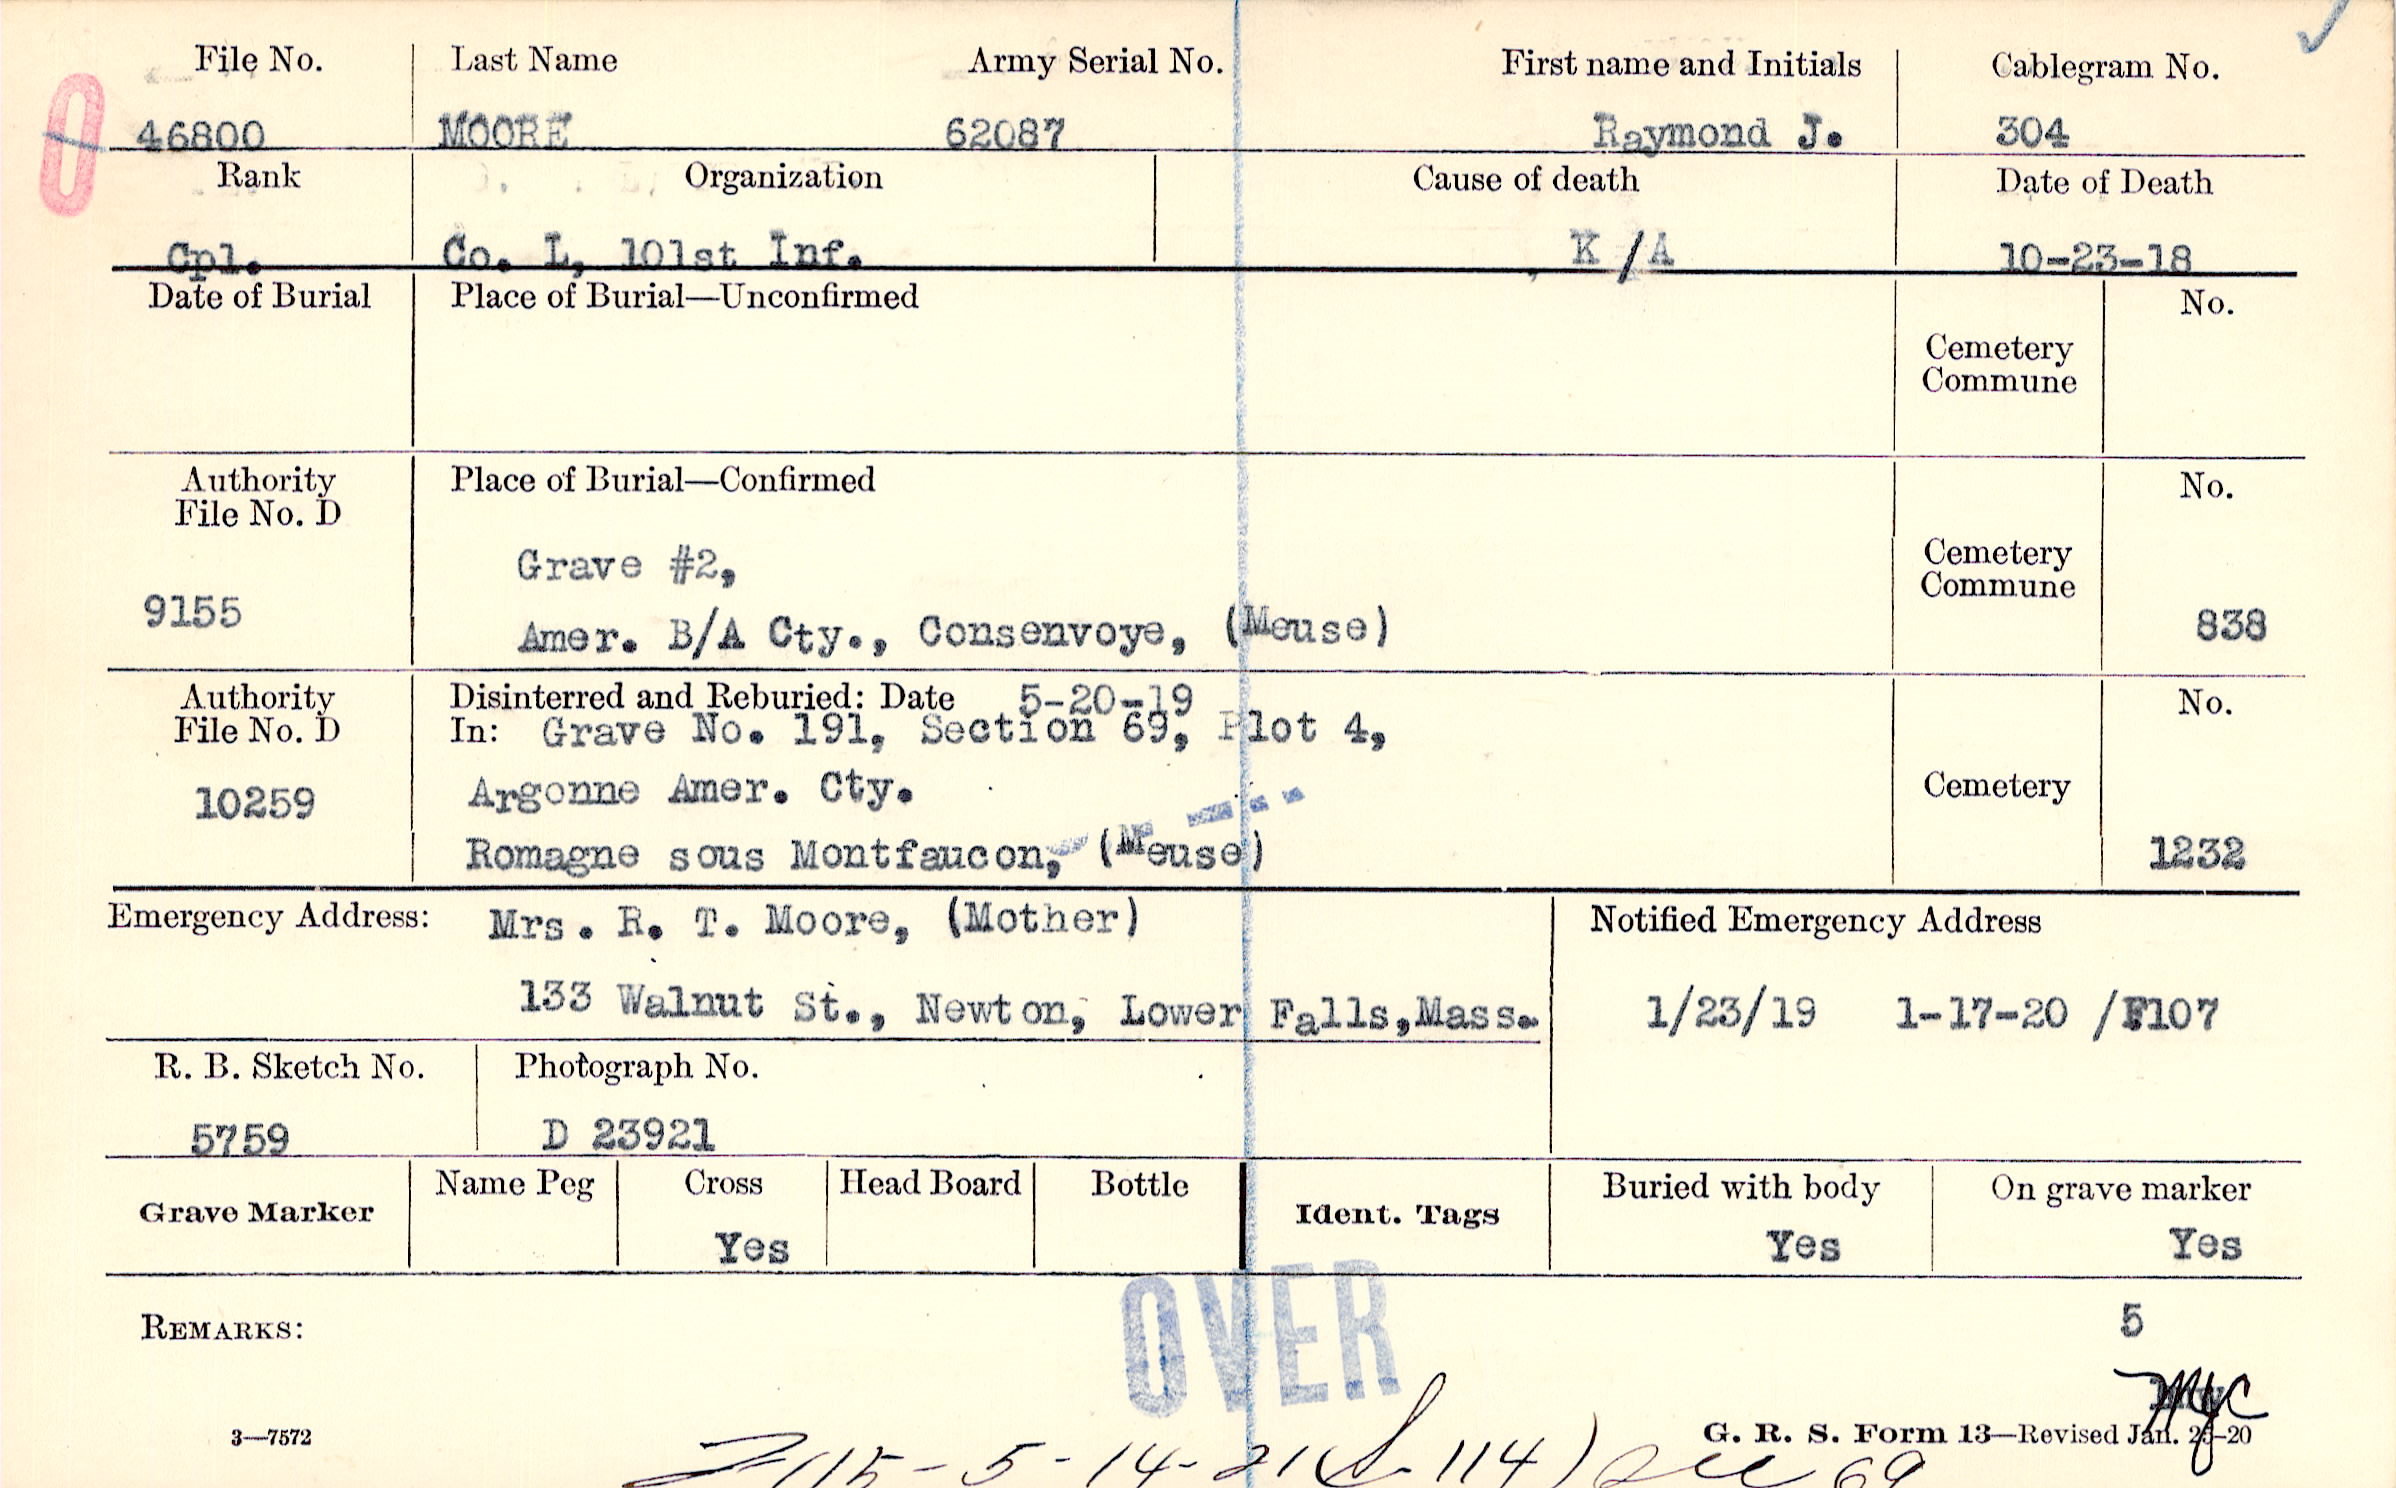 File No. Last Name Army Serial No. First name and Initials Cablegram No.
46800 MOORE 62087 Raymond J. 304
Rank Organization Cause of death Date of Death
Cpl. Co. L, 101st Inf. K/A 10-23-18
Date of Burial Place of Burial—Unconfirmed No.
Cemetery
Commune
Authority Place of Burial—Confirmed No.
File No. D
Grave #2,
Cemetery
Commune
9155 Amer. B/A Cty., Consenvoye, (Meuse) 838
Authority Disinterred and Reburied: Date 5-20-19 No.
File No. D In: Grave No. 191, Section 69, Plot 4,
10259 Argonne Amer. Cty. Cemetery
Romagne sous Montfaucon, (Meuse) 1232
Emergency Address: Mrs. R. T. Moore, (Mother) Notified Emergency Address
133 Walnut St., Newton, Lower Falls, Mass. 1/23/19 1-17-20 /F107
R. B. Sketch No. Photograph No.
5759 D 23921
Grave Marker Name Peg Cross Head Board Bottle Ident. Tags Buried with body On grave marker
Yes Yes Yes
OVER
REMARKS: 5
3—7572 G. R. S. Form 13—Revised Jan. 26-20
115-5-14-21 (S-114) See 69